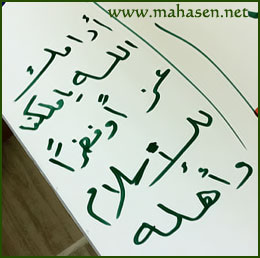 www.mahasen.net
أدامك
الله يا ملكنا
عزاً ونصراً
للإسلام
وأهله